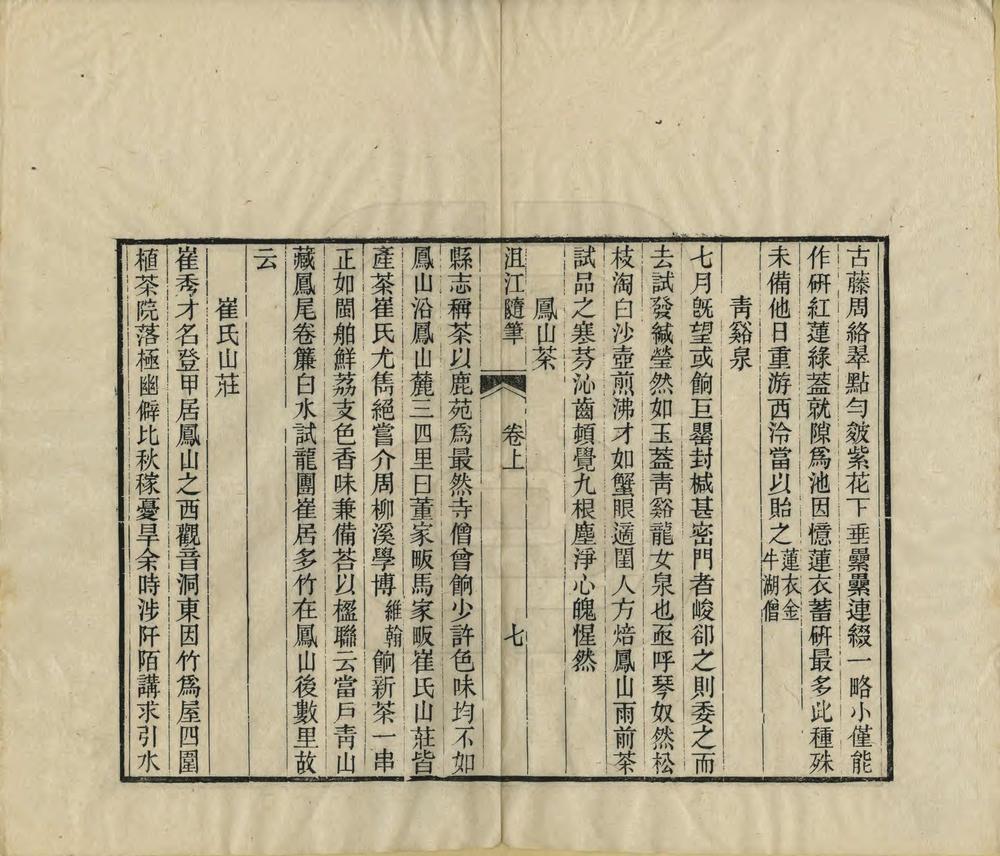 古藤周絡翠點勻皴紫花下垂纍纍連綴一略小僅能
作硏紅蓮綠葢就隙爲池因憶蓮衣蓄硏最多此種殊
未備他日重游西泠當以貽之蓮衣金牛湖僧
靑谿泉
七月旣望或餉巨罌封椷甚密門者峻卻之則委之而
去試發緘瑩然如玉葢靑谿龍女泉也亟呼琴奴然松
枝淘白沙壺煎沸才如蟹眼適閨人方焙鳳山雨前茶
試品之寒芬沁齒頓覺九根塵淨心魄惺然
鳳山茶
沮江隨筆 卷上 七
縣志稱茶以鹿苑爲最然寺僧曾餉少許色味均不如
鳳山沿鳳山麓三四里曰董家畈馬家畈崔氏山莊皆
產茶崔氏尤雋絕嘗介周柳溪學博維翰餉新茶一串
正如閩舶鮮荔支色香味兼備荅以楹聯云當戶靑山
藏鳳尾卷簾白水試龍團崔居多竹在鳳山後數里故
云
崔氏山莊
崔秀才名登甲居鳳山之西觀音洞東因竹爲屋四圍
植茶院落極幽僻比秋稼憂旱余時涉阡陌講求引水